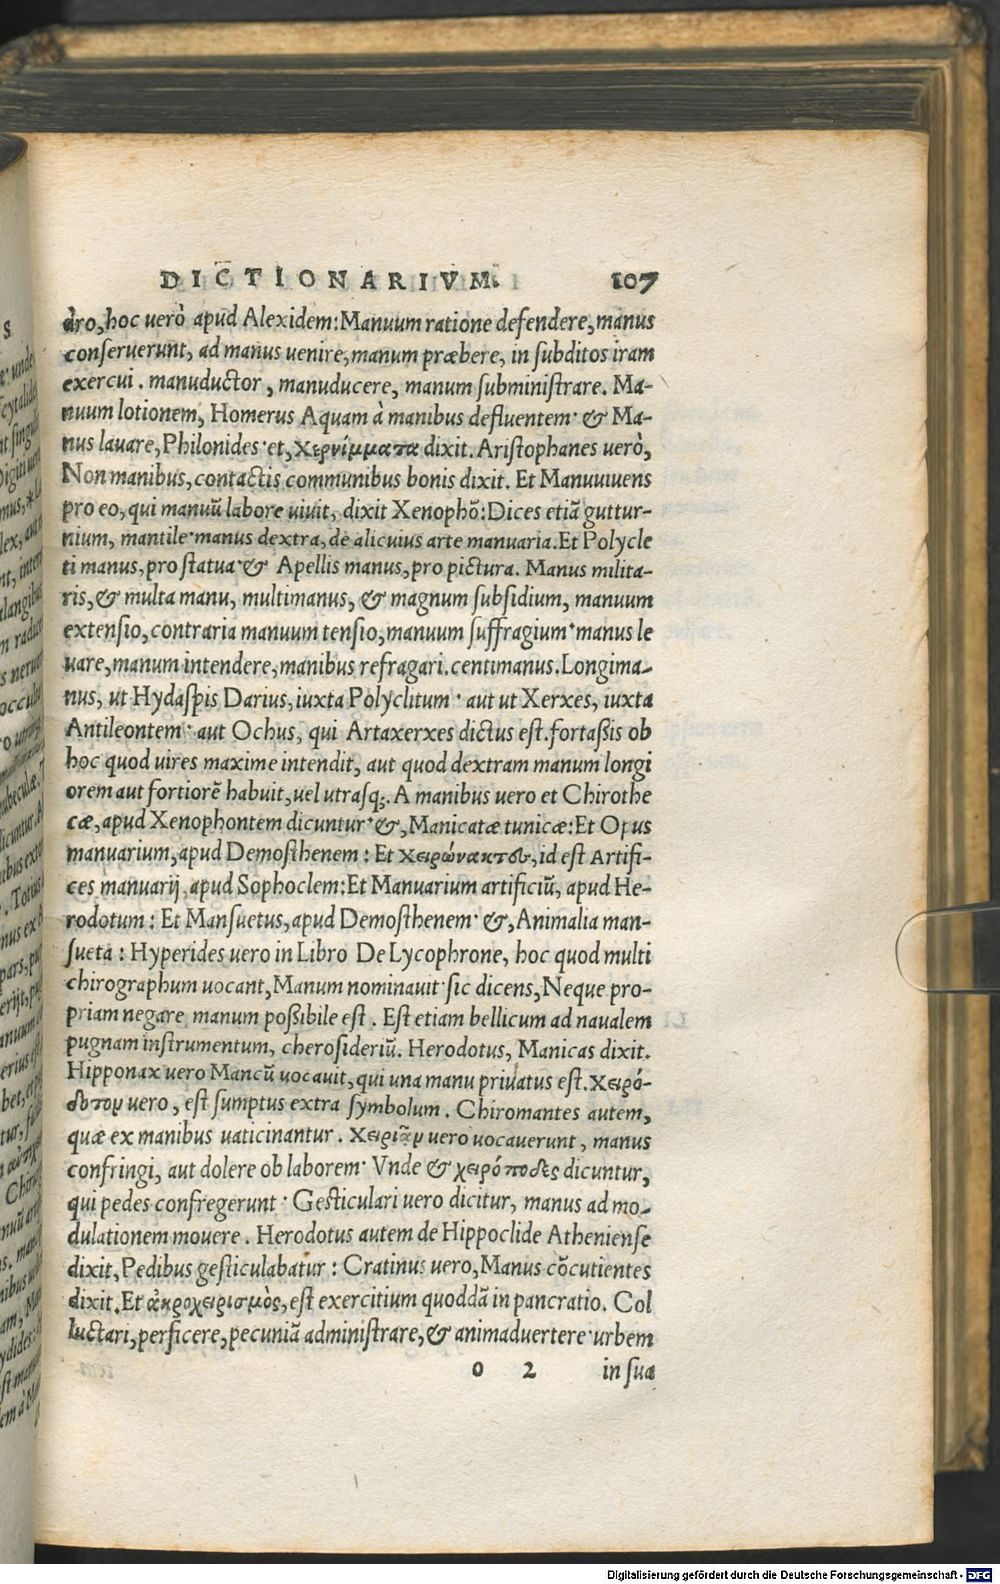 DICTIONARIVM. 107
dro, hoc uerò apud Alexidem: Manuum ratione defendere, manus
conseruerunt, ad manus uenire, manum præbere, in subditos iram
exercui. manuductor, manuducere, manum subministrare. Ma-
nuum lotionem, Homerus Aquam à manibus defluentem· & Ma-
nus lauare, Philonides· et, χερνίμματα dixit. Aristophanes uerò,
Non manibus, contactis communibus bonis dixit. Et Manuuiuens
pro eo, qui manuū labore uiuit, dixit Xenophō: Dices etiā guttur-
nium, mantile· manus dextra, de alicuius arte manuaria. Et Polycle
ti manus, pro statua· & Apellis manus, pro pictura. Manus milita-
ris, & multa manu, multimanus, & magnum subsidium, manuum
extensio, contraria manuum tensio, manuum suffragium· manus le
uare, manum intendere, manibus refragari. centimanus. Longima-
nus, ut Hydaspis Darius, iuxta Polyclitum· aut ut Xerxes, iuxta
Antileontem· aut Ochus, qui Artaxerxes dictus est. fortassis ob
hoc quod uires maxime intendit, aut quod dextram manum longi
orem aut fortiorē habuit, uel utrasq;. A manibus uero et Chirothe
cæ, apud Xenophontem dicuntur· &, Manicatæ tunicæ: Et Opus
manuarium, apud Demosthenem: Et χειρώνακτου, id est Artifi-
ces manuarij, apud Sophoclem: Et Manuarium artificiū, apud He-
rodotum: Et Mansuetus, apud Demosthenem· &, Animalia man-
sueta: Hyperides uero in Libro De Lycophrone, hoc quod multi
chirographum uocant, Manum nominauit· sic dicens, Neque pro-
priam negare manum possibile est. Est etiam bellicum ad naualem
pugnam instrumentum, cherosideriū. Herodotus, Manicas dixit.
Hipponax uero Mancū uocauit, qui una manu priuatus est. χειρό-
δοτον uero, est sumptus extra symbolum. Chiromantes autem,
quæ ex manibus uaticinantur. χειριᾶν uero uocauerunt, manus
confringi, aut dolere ob laborem· Vnde & χειρόποδες dicuntur,
qui pedes confregerunt· Gesticulari uero dicitur, manus ad mo-
dulationem mouere. Herodotus autem de Hippoclide Atheniense
dixit, Pedibus gesticulabatur: Cratinus uero, Manus cōcutientes
dixit. Et ἀκροχειρισμὸς, est exercitium quoddā in pancratio. Col
luctari, perficere, pecuniā administrare, & animaduertere· urbem
O 2 in sua
Digitalisierung gefördert durch die Deutsche Forschungsgemeinschaft - DFG